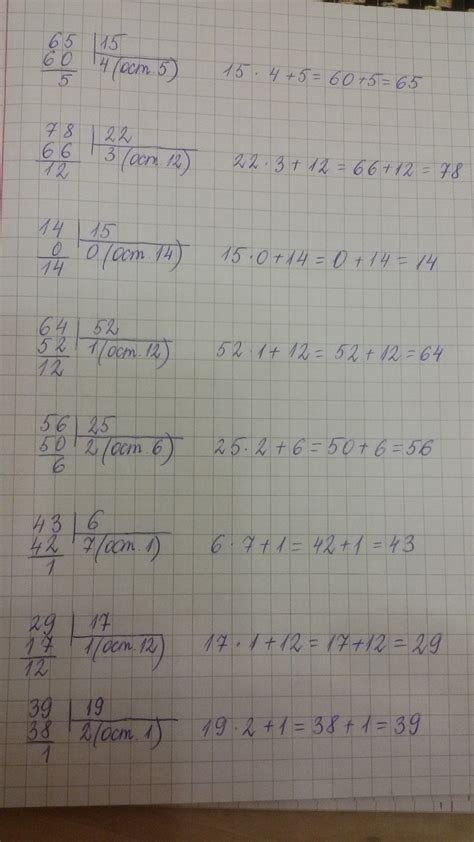 65 | 15
60   4 (ост. 5)   15 · 4 + 5 = 60 + 5 = 65
5
78 | 22
66   3 (ост. 12)   22 · 3 + 12 = 66 + 12 = 78
12
14 | 15
0   0 (ост. 14)   15 · 0 + 14 = 0 + 14 = 14
14
64 | 52
52   1 (ост. 12)   52 · 1 + 12 = 52 + 12 = 64
12
56 | 25
50   2 (ост. 6)   25 · 2 + 6 = 50 + 6 = 56
6
43 | 6
42   7 (ост. 1)   6 · 7 + 1 = 42 + 1 = 43
1
29 | 17
17   1 (ост. 12)   17 · 1 + 12 = 17 + 12 = 29
12
39 | 19
38   2 (ост. 1)   19 · 2 + 1 = 38 + 1 = 39
1